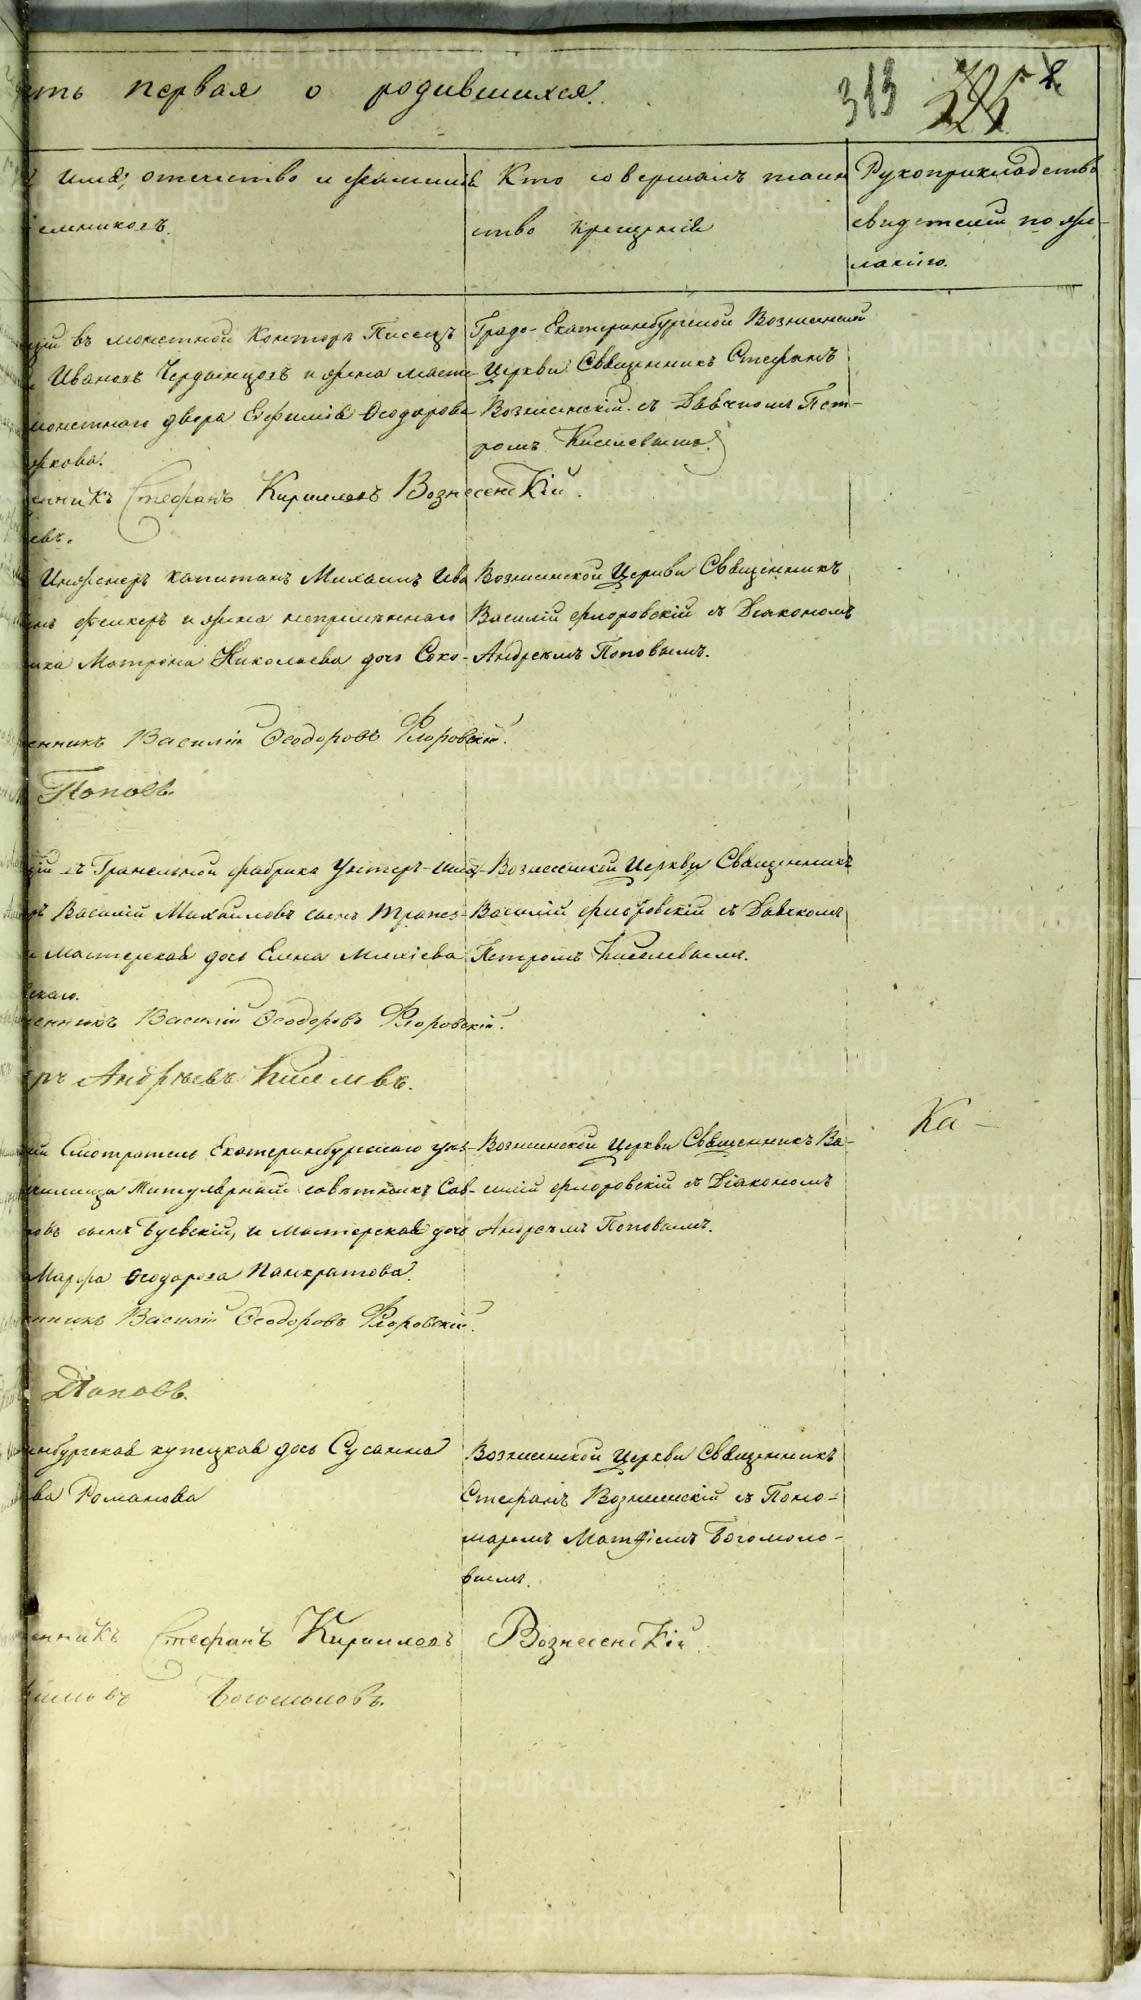 METRIKI.GASO-URAL.RU
ть первая о родившихся.
313
имя, отчество и фамилія
емниковъ.
Кто совершалъ таин
ство крещенія
Рукоприкладство
свидетелей по же-
ланію.
въ монетной Конторѣ Писецъ
Ивановъ Чердынцовъ и жена масте
монетнаго двора Евфимія Ѳеодорова
жкова.
Градо-Екатеринбургской Вознесенской
Церкви Священникъ Стефанъ
Вознесенскій съ Дьячкомъ Пет-
ромъ Киселевымъ.
енникъ Стефанъ Кирилловъ Вознесенскій.
евъ.
Инженеръ Капитанъ Михаилъ Ива
Фелкеръ и жена непремѣннаго
ика Матрона Николаева дочь Соко-
Вознесенской Церкви Священникъ
Василій Флоровскій съ Діакономъ
Андреемъ Поповымъ.
енникъ Василій Ѳеодоровъ Флоровскій.
Поповъ.
цій въ Гранильной фабрикѣ Унтеръ-Ших-
ръ Василій Михайловъ сынъ Трапез-
мастерская дочь Елена
скаго.
Вознесенской Церкви Священникъ
Василій Флоровскій съ Дьячкомъ
Петромъ Киселевымъ.
щенникъ Василій Ѳеодоровъ Флоровскій.
тръ Андрѣевъ Киселевъ.
Ка-
Смотритель Екатеринбургскаго уѣз-
училища Титулярный совѣтникъ Сав-
новъ сынъ Буевскій, и мастерская дочь
Марфа Ѳеодорова Панкратова.
Вознесенской Церкви Священникъ Ва-
силій Флоровскій съ Діакономъ
Андреемъ Поповымъ.
енникъ Василій Ѳеодоровъ Флоровскій.
Поповъ.
инбургская купецкая дочь Сусанна
ева Романова
Вознесенской Церкви Священникъ
Стефанъ Вознесенскій съ Поно-
маремъ Матѳіемъ Богомоло-
вымъ.
енникъ Стефанъ Кирилловъ Вознесенскій.
Богомоловъ.